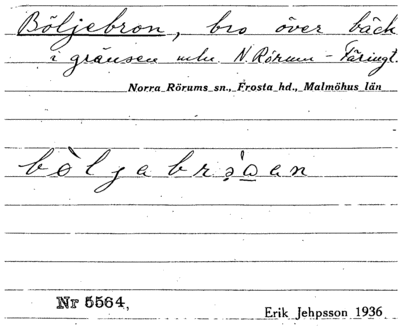 Böljebron, bro över bäck
i gränsen mln N. Rörum - Färingt.
Norra Rörums sn., Frosta hd., Malmöhus län
Nr 5564,
Erik Jehpsson 1936